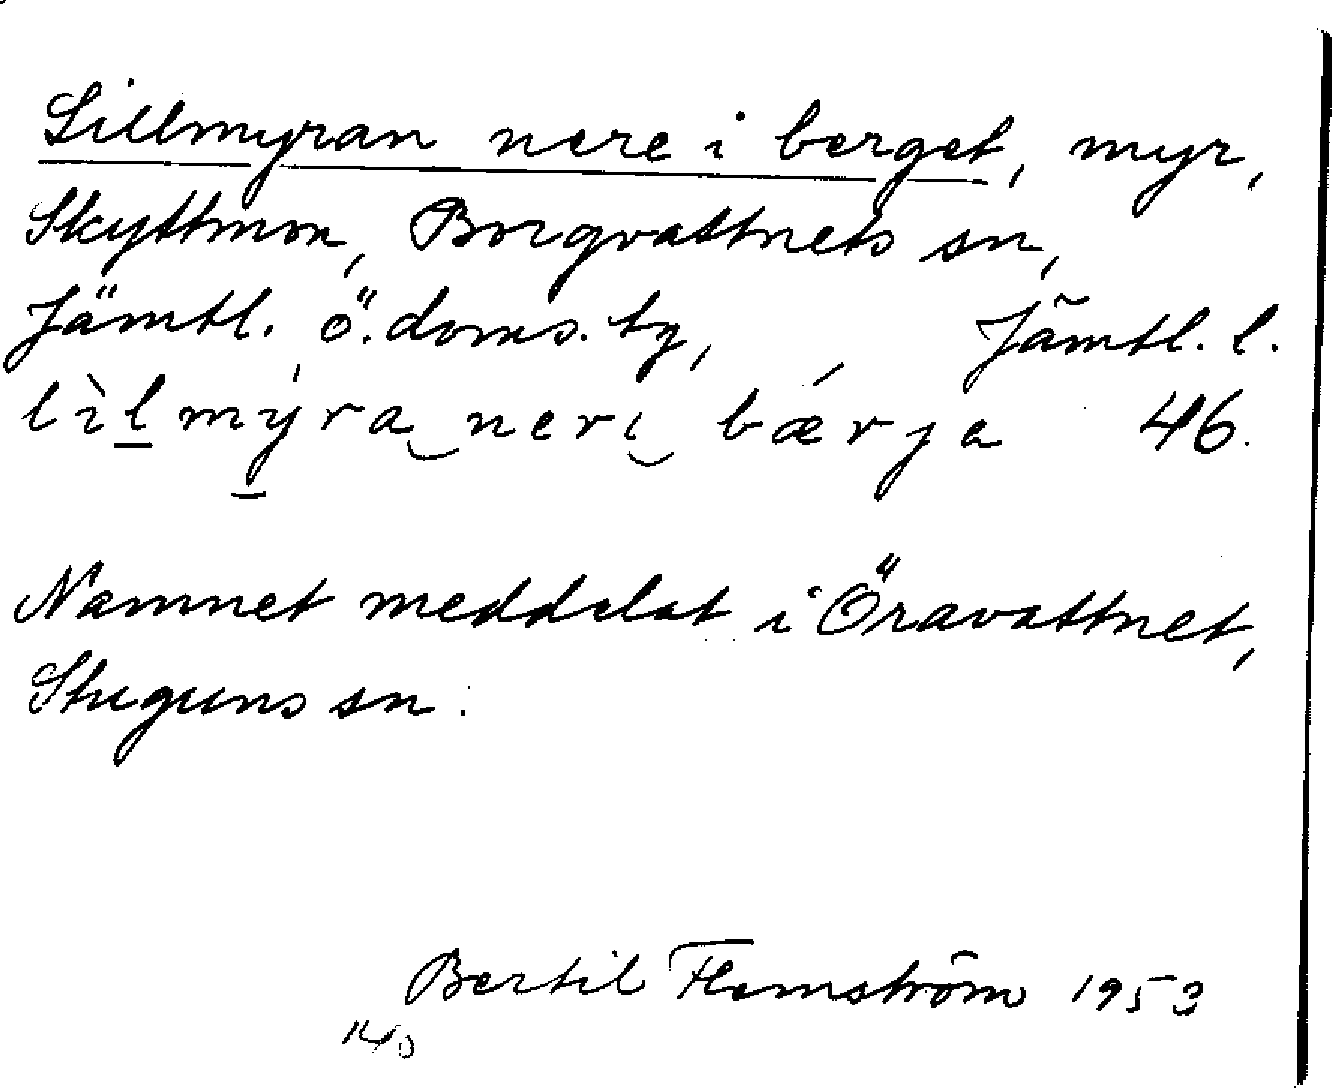 Lillmyran nere i berget, myr,
Skyttmon, Borgvattnets sn,
Jämtl. ö. doms. tg, Jämtl. l.
lìlmýra neri bǽrja 46.
Namnet meddelat i Öravattnet,
Stuguns sn.
Bertil Flemström 1953